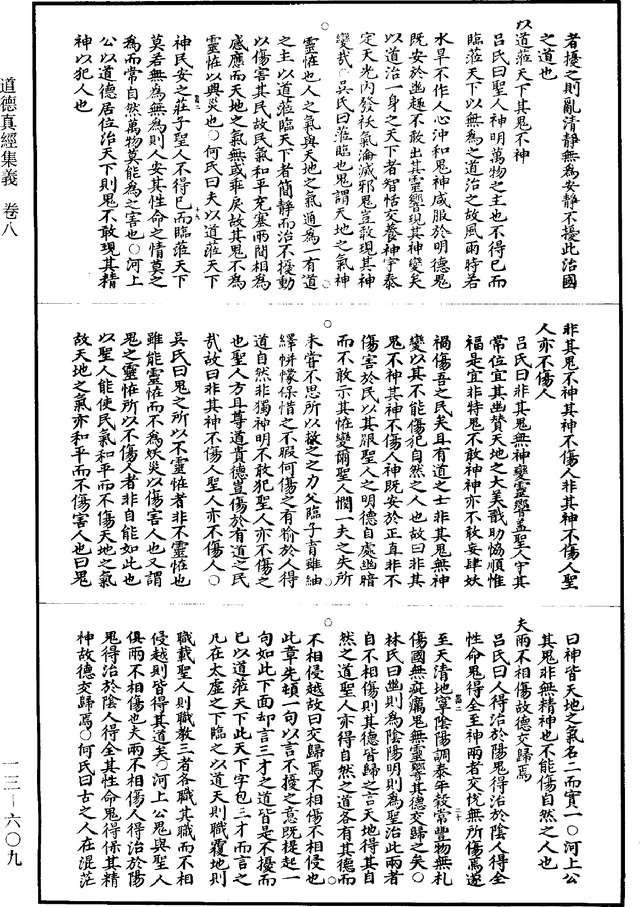 者擾之則亂清靜無為安靜不擾此治國
之道也
以道莅天下其鬼不神
呂氏曰聖人神明萬物之主也不得已而
臨莅天下以無為之道治之故風雨時若
水旱不作人心沖和鬼神咸服於明德鬼
既安於幽趣不敢出其靈響現其神變矣
以道治一身之天下者智恬交養神宇泰
定天光內發袄氣淪滅邪鬼豈敢現其神
變哉○吳氏曰莅臨也鬼謂天地之氣神
靈怪也人之氣與天地之氣通為一有道
之主以道莅臨天下者簡靜而治不擾動
以傷害其民故民氣和平充塞兩間相為
感應而天地之氣無或乖戾故其鬼不為
靈怪以興災也○何氏曰夫以道莅天下
神民安之莊子聖人不得已而臨莅天下
莫若無為無為則人安其性命之情莫之
為而常自然萬物莫能為之害也○河上
公以道德居位治天下則鬼不敢現其精
神以犯人也
非其鬼不神其神不傷人非其神不傷人聖
人亦不傷人
呂氏曰非其鬼無神變靈響蓋聖人守其
常位宜其幽贊天地之大美戬助恊順惟
福是宜非特鬼不敢神神亦不敢妄肆妖
禍傷吾之民矣且有道之士非其鬼無神
變以其不能傷犯自然之人也故曰非其
鬼不神其神不傷人神既安於正直非不
傷害於民以其服聖人之明德自處幽暗
而不敢示其怪變爾聖人憫一夫之失所
未甞不思所以拯之之力父臨子育雖紬
繹帡幪保惜之不暇何傷之有喻於人得
道自然非獨神明不敢犯聖人亦不傷之
也聖人方且尊道貴德豈傷於有道之民
哉故曰非其神不傷人聖人亦不傷人○
吳氏曰鬼之所以不靈怪者非不靈怪也
雖能靈怪而不為妖災以傷害人也又謂
鬼之靈怪所以不傷人者非自能如此也
以聖人能使民氣和平而不傷天地之氣
故天地之氣亦和平而不傷害人也曰鬼
曰神皆天地之氣名二而實一○河上公
其鬼非無精神也不能傷自然之人也
夫兩不相傷故德交歸焉
呂氏曰人得治於陽鬼得治於陰人得全
性命鬼得全至神兩者交恱無所傷焉遂
至天清地寧陰陽調泰年穀常豐物無札
傷國無疵癘鬼無靈響其德交歸之矣○
林氏曰幽則為陰陽明則為聖治此兩者
自不相傷則其德皆歸之言天地得其自
然之道聖人亦得自然之道各有其德而
不相侵越故曰交歸焉不相傷不相侵也
此章先頓一句以言不擾之意既提起一
句如此下面却言三才之道皆是不擾而
已以道莅天下此天下字包三才而言之
凡在太虛之下臨之以道天則職覆地則
職載聖人則職教三者各職其職而不相
侵越則皆得其道矣○河上公鬼與聖人
俱兩不相傷也夫兩不相傷人得治於陽
鬼得治於陰人得全其性命鬼得保其精
神故德交歸焉○何氏曰古之人在混茫
道德真經集義　卷八
一三—六〇九